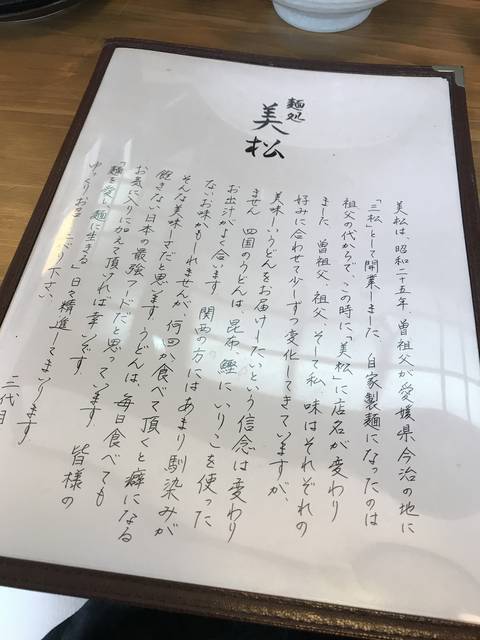 麺処
美松
美松は、昭和二十五年、曽祖父が愛媛県今治の地に
「三松」として開業しました。自家製麺になったのは
祖父の代からで、この時に「美松」に店名が変わり
ました。曽祖父、祖父、そして私、味はそれぞれの
好みに合わせて少しずつ変化してきていますが、
美味しいうどんをお届けしたいという信念は変わり
ません。四国のうどんは、昆布、鰹に、いりこを使った
お出汁がよく合います。関西の方にはあまり馴染みが
ないお味かもしれませんが、何回か食べて頂くと癖になる
そんな美味しさだと思います。うどんは、毎日食べても
飽きない日本の最強フードだと思っています。皆様の
お気に入りに加えて頂ければ幸いです。
「麺を愛し麺に生きる」日々精進してまいります。
ゆっくりお召し上がり下さい。
三代目